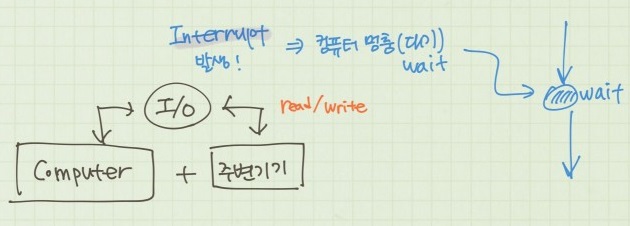 Interrupt ⇒ 컴퓨터 멈춤(대기)
발생! wait
wait
I/O read/write
Computer + 주변기기